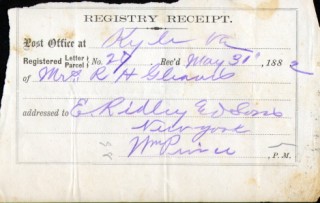 REGISTRY RECEIPT.
Post Office at Kyle Va
Registered { Letter Parcel } No. 27 Rec'd May 31st, 1882
of Mrs R H Gleaves
addressed to E Ridley & Sons
New York
Wm Prince, P. M.